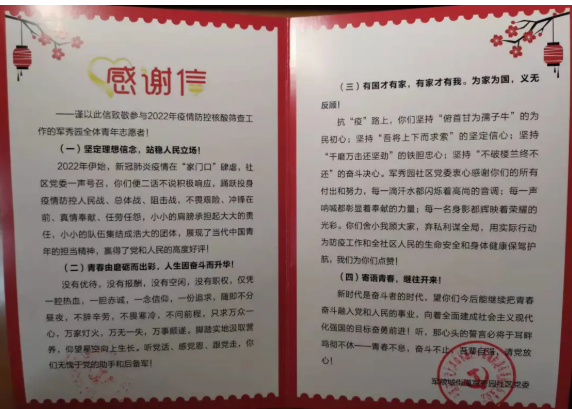 感谢信
——谨以此信致敬参与2022年疫情防控核酸筛查工
作的军秀园全体青年志愿者！
（一）坚定理想信念，站稳人民立场！
2022年伊始，新冠肺炎疫情在“家门口”肆虐，社
区党委一声号召，你们便二话不说积极响应，踊跃投身
疫情防控人民战、总体战、阻击战，不畏艰险、冲锋在
前、真情奉献、任劳任怨，小小的肩膀承担起大大的责
任，小小的队伍集结成浩大的团体，展现了当代中国青
年的担当精神，赢得了党和人民的高度好评！
（二）青春由磨砺而出彩，人生因奋斗而升华！
没有优待，没有报酬，没有空闲，没有职权，仅凭
一腔热血，一胆赤诚，一念信仰，一份追求，随即不分
昼夜，不辞辛劳，不畏寒冷，不问前程，只求万众一
心，万家灯火，万无一失，万事顺遂，脚踏实地汲取营
养，仰望星空向上生长。听党话、感党恩、跟党走，你
们无愧于党的助手和后备军！
（三）有国才有家，有家才有我。为家为国，义无
反顾！
抗“疫”路上，你们坚持“俯首甘为孺子牛”的为
民初心；坚持“吾将上下而求索”的坚定信心；坚持
“千磨万击还坚劲”的铁胆忠心；坚持“不破楼兰终不
还”的奋斗决心。军秀园社区党委衷心感谢你们的所有
付出和努力，每一滴汗水都闪烁着高尚的音调；每一声
呐喊都彰显着奉献的力量；每一名身影都辉映着荣耀的
光彩。你们舍小我顾大家，弃私利谋全局，用实际行动
为防疫工作和全社区人民的生命安全和身体健康保驾护
航，我们为你们点赞！
（四）寄语青春，继往开来！
新时代是奋斗者的时代，望你们今后能继续把青春
奋斗融入党和人民的事业，向着全面建成社会主义现代
化强国的目标奋勇前进！听，那心头的誓言必将于耳畔
鸣彻不休——青春不息，奋斗不止，吾辈自强，请党放
心！
军秀园社区党委